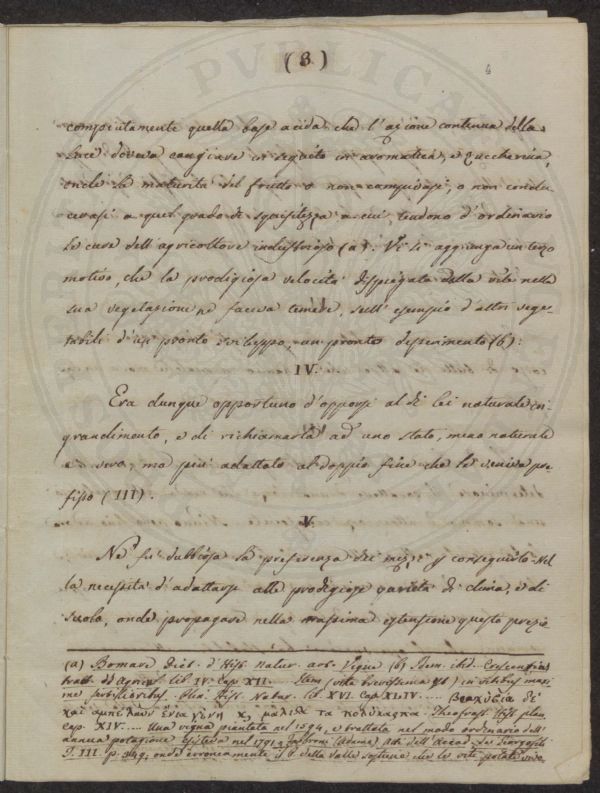 (3)
4
compiutamente quella base acida che l'azione continua della
luce doveva cangiare in seguito in aromatica, e zuccherina,
onde la maturità del frutto o non compivasi, o non condu
cevasi a quel grado di squisitezza a cui tendono d'ordinario
le cure dell'agricoltore industrioso (a). Vi si aggiunga un terzo
motivo, che la prodigiosa velocità dispiegata dalla vite nella
sua vegetazione ne faceva temere, sull'esempio d'altri vege-
tabili d'un pronto sviluppo, un pronto deperimento (b).
IV.
Era dunque opportuno d'opporsi al di lei naturale in
grandimento, e di richiamarla ad uno stato, meno naturale
è vero, ma più adattato al doppio fine che le veniva pre
fisso (III).
V.
Ne fu dubbiosa la preferenza dei mezzi p conseguirlo. Nel
la necessità d'adattarsi alle prodigiose varietà di clima, e di
suolo, onde propagare nella massima estensione questo prezio
(a) Bomare Dict. d'Hist. Natur. art. Vigne (b) Crescenzio
tratt. d'Agricolt. lib. IV. Cap. XII. .... in vitibus maxi
me fertilioribus. Plin. Hist. Natur. lib. XVI. Cap. XLIV. .... βραχύβια δὲ
καὶ ἀμπέλων ἔνια γένη κ̣ μάλιστα τὰ πολύκαρπα. Theofrast. Hist. plan.
cap. XIV. .... Una vigna piantata nel 1594, e trattata nel modo ordinario dell'
annua potagione esisteva nel 1791. Fabbroni (Adamo) Atti dell'Accad. dei Georgofili
T. III. p. 349; onde erroneamente il S. della Valle sostiene che le viti potate vivo